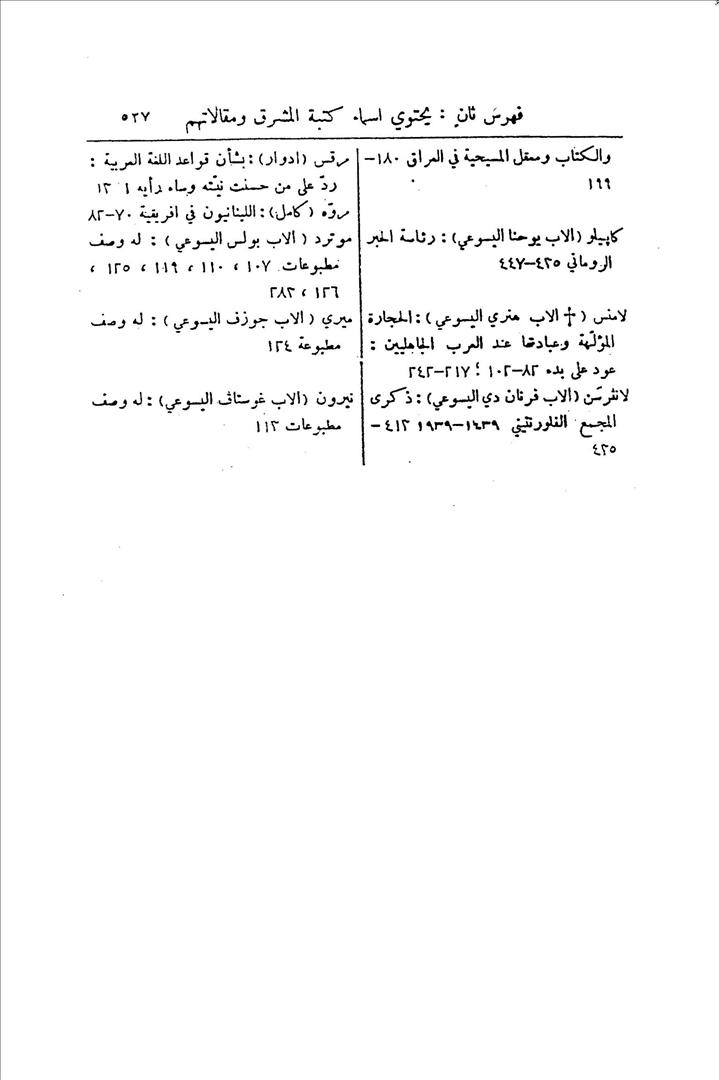 فهرس ثانٍ : يحتوي اسماء كتبة المشرق ومقالاتهم ٥٢٧
والكتاب ومعقل المسيحية في العراق ١٨٠–
١٩٩
كاپيلو (الاب يوحنا اليسوعي) : رئاسة الحبر
الروماني ٤٢٥–٤٤٧
لامنس ( † الاب هنري اليسوعي ) : الحجارة
المؤلّهة وعبادتها عند العرب الجاهليين :
عود على بدء ٨٢–١٠٢ ؛ ٢١٧–٢٤٢
لانڤرسن (الاب فرنان دي اليسوعي) : ذكرى
المجمع الفلورنتيني ١٤٣٩–١٩٣٩ ٤١٢–
٤٢٥
مرقس (ادوار) : بشأن قواعد اللغة العربية :
ردّ على من حسنت نيّته وساء رأيه
مروّه (كامل) : اللبنانيون في افريقية ٧٠–٨٢
موترد ( الاب بولس اليسوعي ) : له وصف
مطبوعات ١٠٧ ، ١١٠ ، ١١٩ ، ١٢٥ ،
١٢٦ ، ٢٨٢
ميري ( الاب جوزف اليسوعي ) : له وصف
مطبوعة ١٢٤
نيرون (الاب غوستاڤ اليسوعي) : له وصف
مطبوعات ١١٢